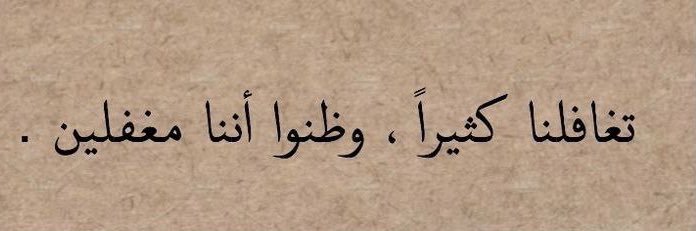 تغافلنا كثيراً ، وظنوا أننا مغفلين .